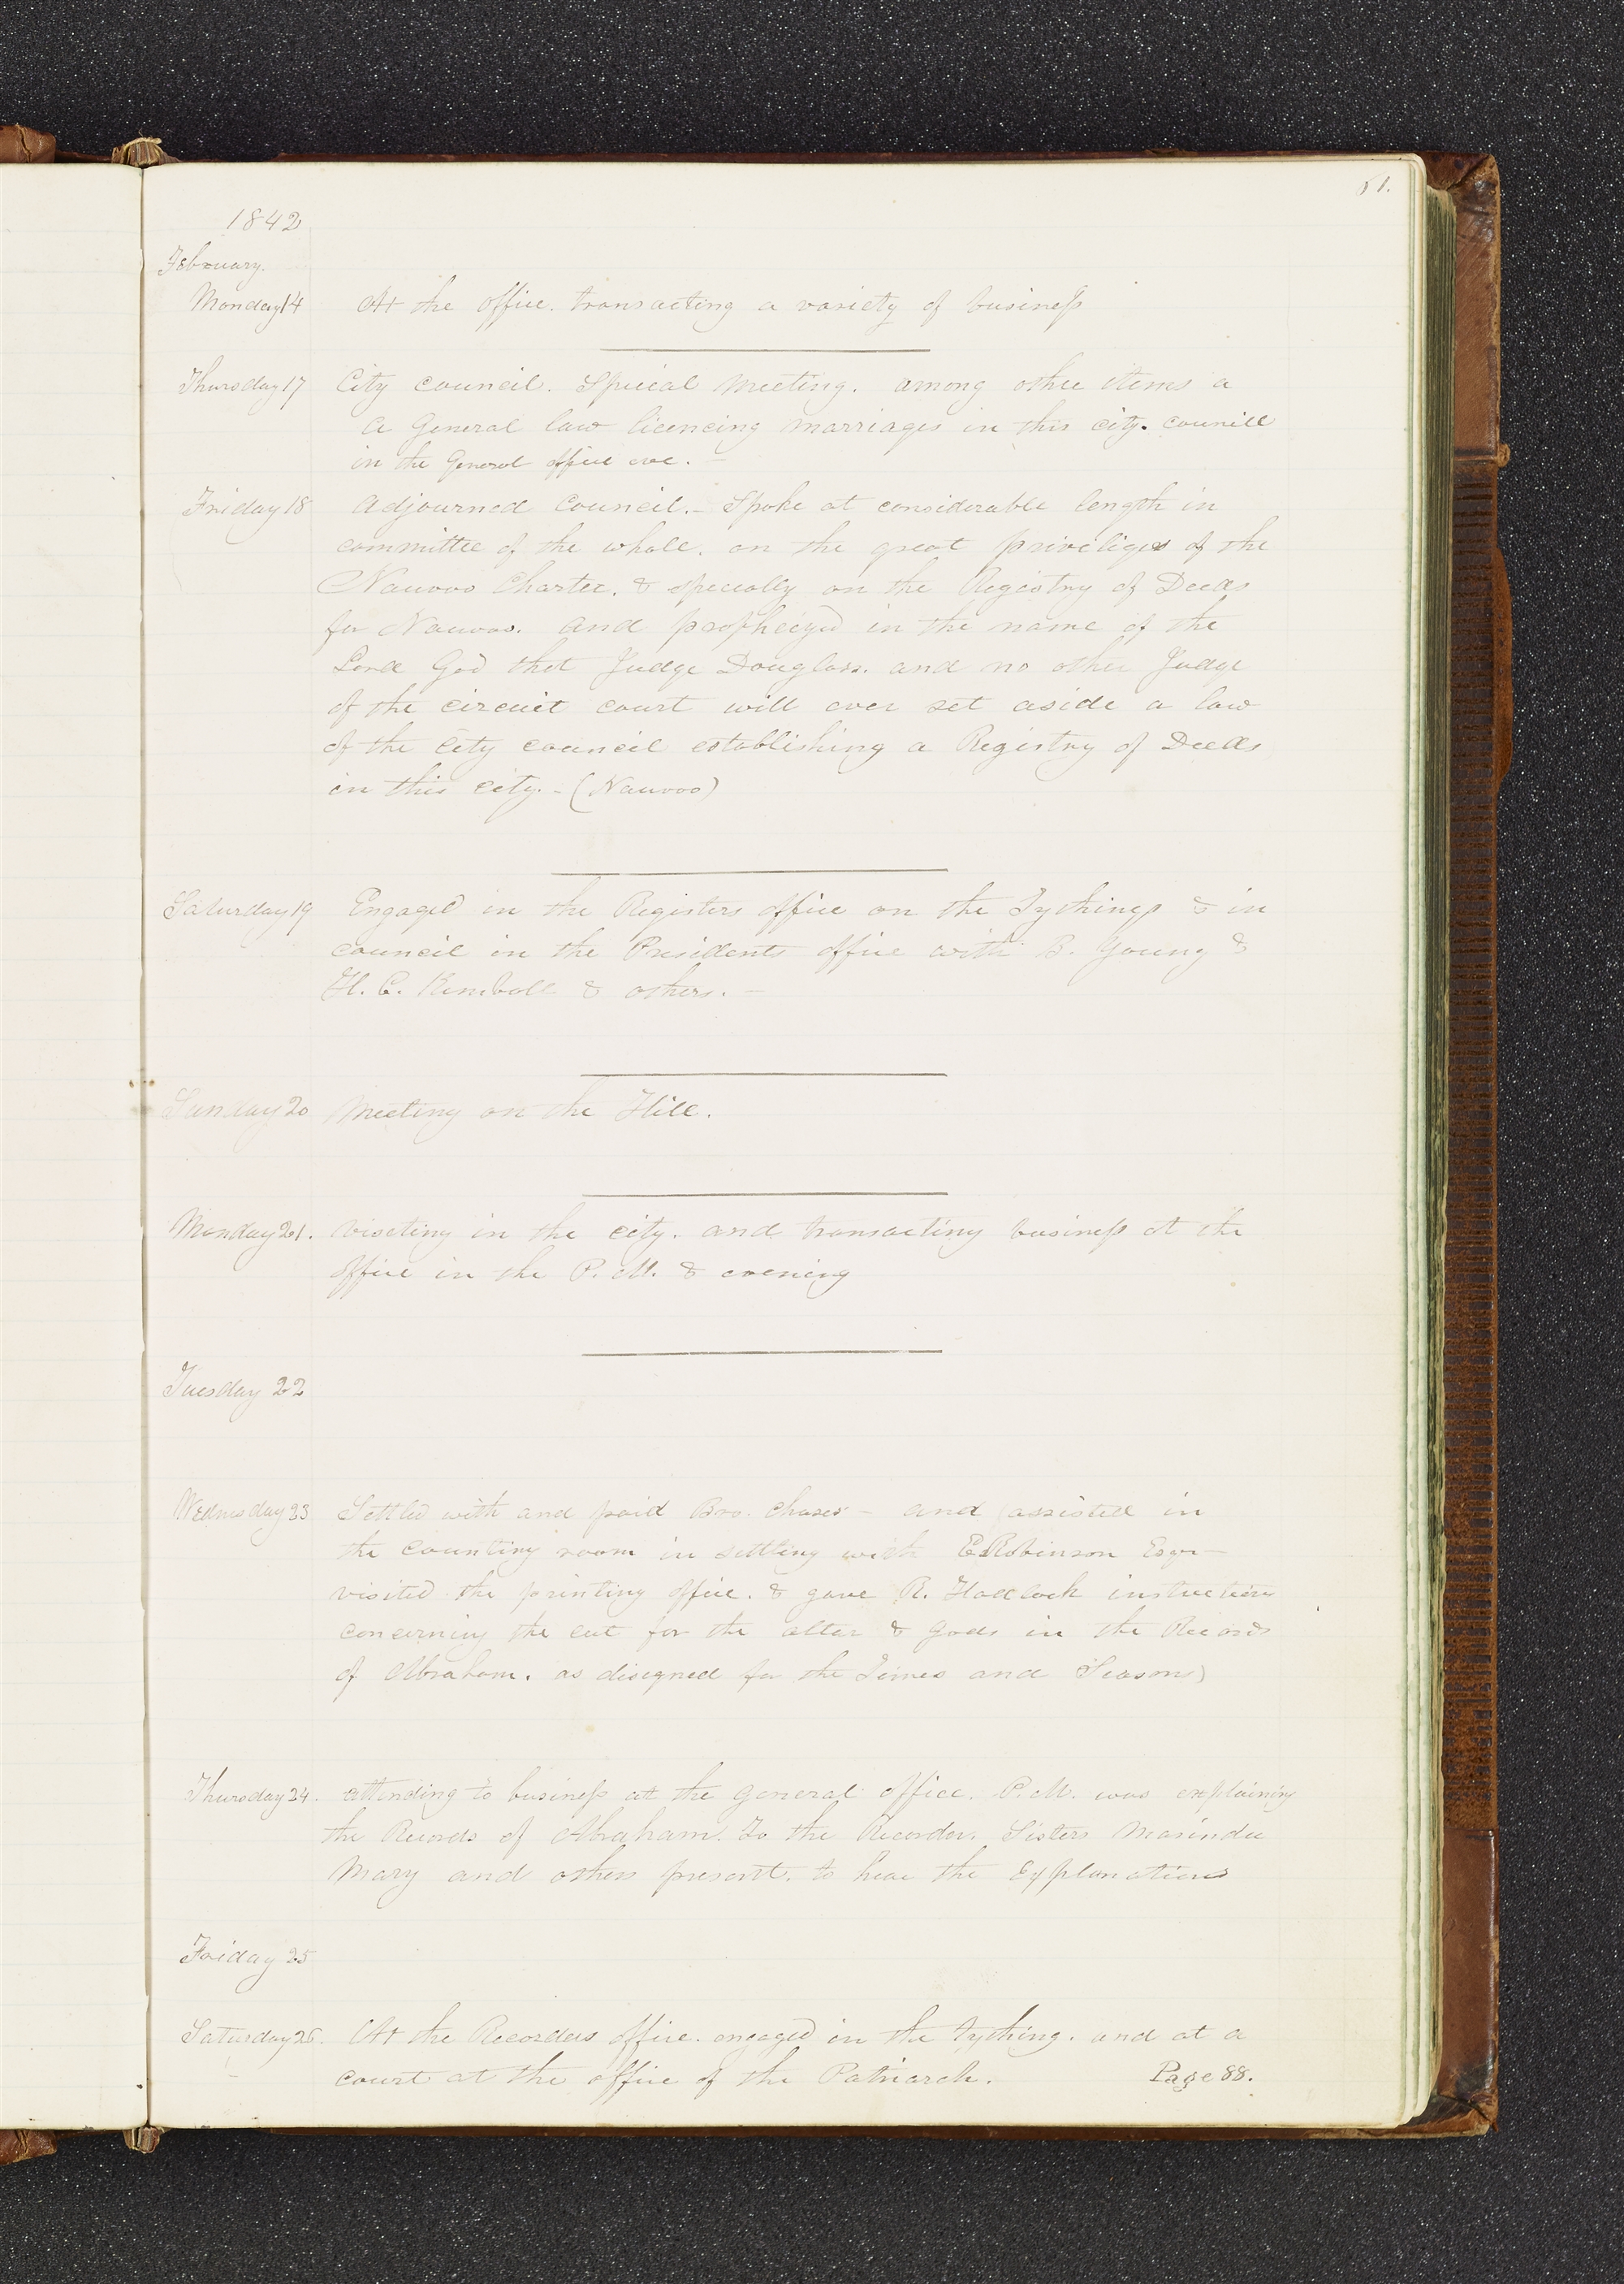 61.
1842
February.
Monday 14 At the office. transacting a variety of business
Thursday 17 City council. Special Meeting. among other items a
a General law licencing marriages in this city. councill
in the General office eve. –
Friday 18 Adjourned Council. – Spoke at considerable length in
committee of the whole. on the great priviliges of the
Nauvoo Charter. & specially on the Registry of Deeds
for Nauvoo. and prophecyed in the name of the
Lord God that Judge Douglass. and no other Judge
of the circuit court will ever set aside a law
of the city council establishing a Registry of Deeds
in this city. – (Nauvoo)
Saturday 19 Engaged in the Registers office on the Tythings & in
council in the Presidents office with B. Young &
H. C. Kimball & others. –
Sunday 20 Meeting on the Hill.
Monday 21. viseting in the city. and transacting business at the
office in the P. M. & evening
Tuesday 22
Wednesday 23 Settled with and paid Bro. Chases – and assisted in
the counting room in settling with E Robinson Esqr –
visited the printing office. & gave R. Hadlock instructions
concerning the cut for the altar & gods in the Records
of Abraham. as designed for the Times and Seasons
Thursday 24. attending to business at the general office. P. M. was explaining
the Records of Abraham. To the Recorder. Sisters Marinda
Mary and others present. to hear the Explanations
Friday 25
Saturday 26. At the Recorders office. engaged in the tything. and at a
court at the office of the Patriarch. Page 88.